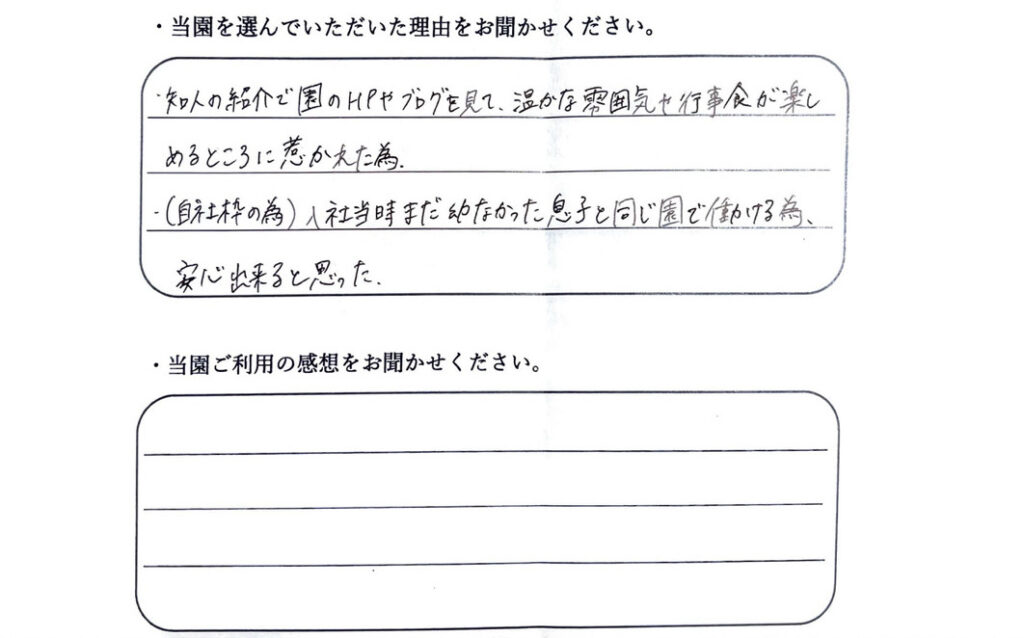 ・当園を選んでいただいた理由をお聞かせください。
・知人の紹介で園のHPやブログを見て、温かな雰囲気や行事食が楽し
めるところに惹かれた為、
・(自社枠の為)入社当時まだ幼なかった息子と同じ園で働かける為、
安心出来ると思った.
・当園ご利用の感想をお聞かせください。